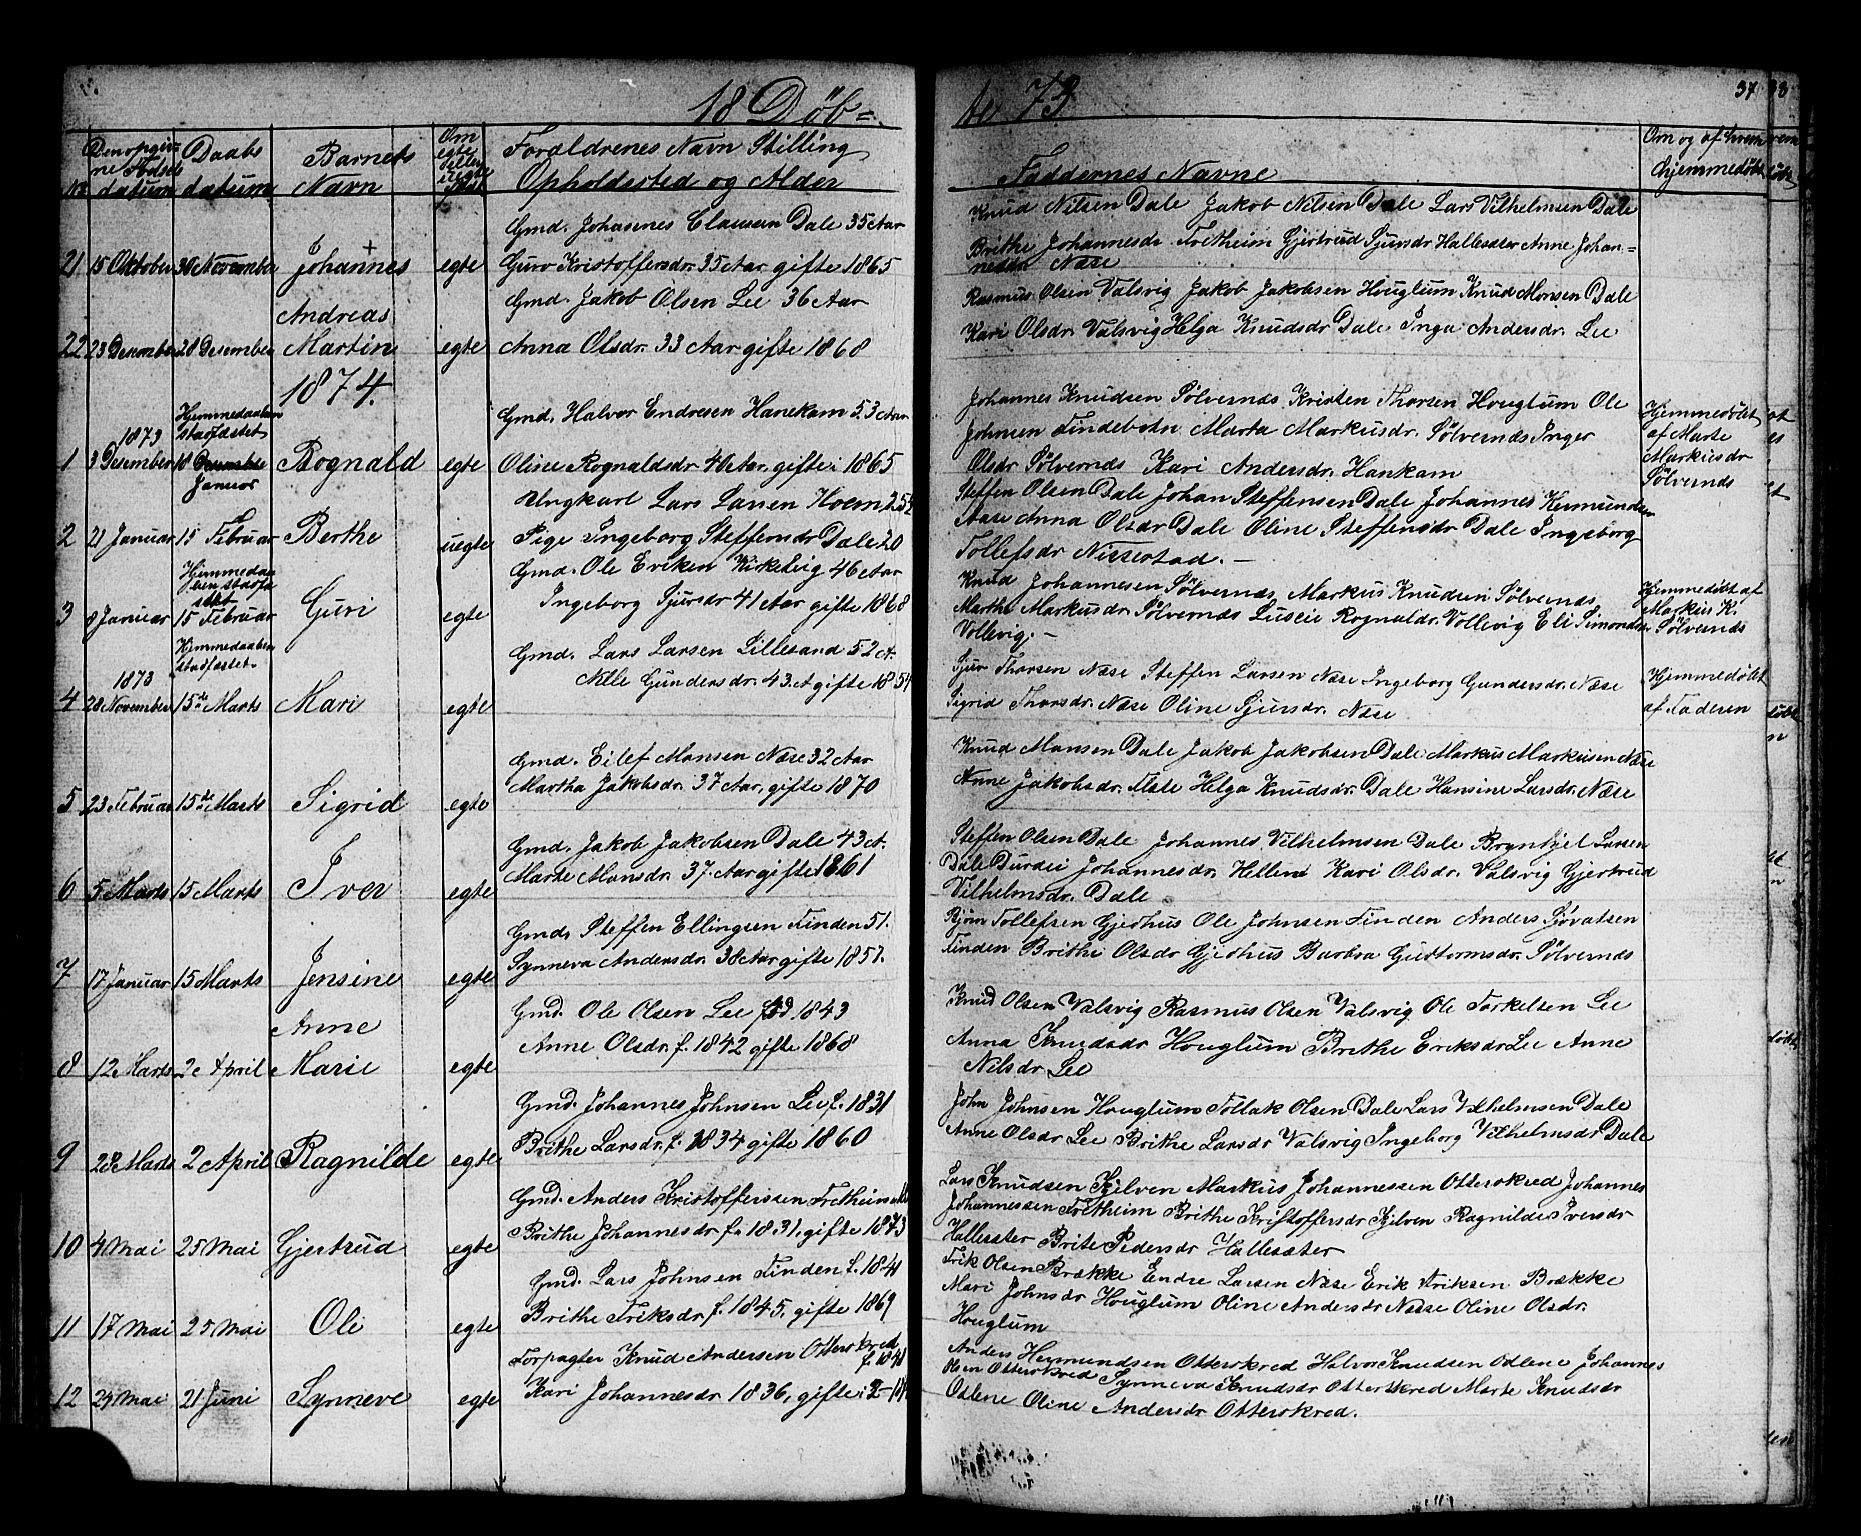 18 Döb=
te 73
37
No
Den opgivne Fødselsdatum
Daabsdatum
Barnets Navn
Om egte eller uegte født
Foraldrenes Navn Stilling
Opholdssted og Alder
Faddernes Navne
Om og af hvem hjemmedøbt
Gmd. Johannes Clausen Dale 35 Aar
21 15 Oktober 30 November Johannes egte Guro Kristoffersdr. 35 Aar gifte 1865
Knud Nilsen Dale Jakob Nilsen Dale Lars Vilhelmsen Dale
Brithe Johannesdr. Fretheim Gjertrud Sjursdr Hallesæter Anne Johan=
nesdr Nase
Gmd. Jakob Olsen Lee 36 Aar
Andreas
22 23 Desember 28 Desember Martin egte Anna Olsdr. 33 Aar gifte 1868
Rasmus Olsen Valsvig Jakob Jakobsen Houglum Knud Monsen Dale
Kari Olsdr. Valsvig Helga Knudsdr Dale Inga Andersdr. Lee
1874.
Hjemmedaaben
stadfæstet
Gmd. Halvor Endresen Hanekam 53 Aar
1873
1 3 Desember 18 Januar Rognald egte Oline Rognaldsdr 40 Aar, gifte i 1865
Johannes Knudsen Sølvernds Kristen Thorsen Houglum Ole
Johnsen Findebotn Marta Markusdr. Sølvernds Inger
Olsdr Sølvernds Kari Andersdr. Hankam
Hjemmedöbt
af Marte
Markusdr
Sølvernds
Ungkarl Lars Larsen Hoem 25
2 21 Januar 15 Februar Berthe uegte Pige Ingeborg Steffensdr Dale 20
Steffen Olsen Dale Johan Steffensen Dale Johannes
Nase Anna Olsdr Dale Oline Steffensdr Dale Ingeborg
Tollefsdr Nissestad. —
Hjemmedaa
ben stadfæ
stet
Gmd. Ole Eriken Kirkevig 46 Aar
3 8 Januar 15 Februar Guri egte Ingeborg Sjursdr 41 Aar gifte 1868
Knud Johannesen Sølvernds Markus Knudsen Sølvernds
Marthe Markusdr. Sølvernds Luseie Rognaldr. Vollevig Eli Simonsdr.
Vollevig. —
Hjemmedöbt af
Markus K.
Sølvernds
Hjemmedaaben
stadfæstet
Gmd. Lars Larsen Lillesand 52 A.
1873
4 28 November 15de Marts Mari egte Nille Gundersdr. 43. A gifte 1854
Sjur Thorsen Nase Steffen Larsen Nase Ingeborg Gundersdr. Nase
Sigrid Thorsdr. Nase Oline Sjursdr. Nase
Hjemmedöbt
af Faderen
Gmd. Eilef Monsen Nase 32 Aar
5 23 Februar 15de Marts Sigrid egte Martha Jakobsdr. 37 Aar, gifte 1870
Knud Monsen Dale Jakob Jakobsen Dale Markus Markusen Nase
Anne Jakobsdr. Helga Knudsdr. Dale Hansine Larsdr. Nase
Gmd. Jakob Jakobsen Dale 43 A.
6 5 Marts 15 Marts Iver egte Marte Monsdr. 37. Aar gifte 1861
Steffen Olsen Dale Johannes Vilhelmsen Dale Brynhjel Larsen
Dale Durdei Johannesdr. Hellene Kari Olsdr. Valsvig Gjertrud
Vilhelmsdr. Dale
Gmd. Steffen Ellingsen Finden 51.
7 17 Januar 15 Marts Jensine egte Synneva Andersdr. 38 Aar gifte 1857.
Bjørn Tollefsen Gjerhus Ole Johnsen Finden Anders Sjovatsen
Finden Brithe Olsdr Gjerhus Barbra Guttormsdr. Sølvernds
Gmd. Ole Olsen Lee 1843
Anne
8 12 Marts 2 April Marie egte Anne Olsdr. f. 1842 gifte 1868
Knud Olsen Valsvig Rasmus Olsen Valsvig Ole Torkelsen Lee
Anna Knudsdr Houglum Brithe Eriksdr Lee Anne
Nilsdr Lee
Gmd. Johannes Johnsen Lee f. 1831
9 28 Marts 2 April Ragnilde egte Brithe Larsdr. f. 1834 gifte 1860
John Johnsen Houglum Tollak Olsen Dale Lars Vilhelmsen Dale
Anne Olsdr Lee Brithe Larsdr Valsvig Ingeborg Vilhelmsdr Dale
Gmd. Anders Kristofferssen Fretheim
10 4 Mai 25 Mai Gjertrud egte Brithe Johannesdr f. 1831, gifte 1873
Lars Knudsen Kjilven Markus Johannessen Otterskred Johannes
Johannessen Fretheim Brithe Kristoffersdr Kjilven Ragnilde Iversdr
Hallesater Brite Pedersdr Hallesæter
Gmd. Lars Johnsen Finden f. 1841
11 17 Mai 25 Mai Ole egte Brithe Eriksdr f. 1845, gifte 1869
Erik Olsen Brække Endre Larsen Nase Erik Eriksen Brække
Mari Johnsdr Houglum Oline Andersdr Nase Oline Olsdr.
Houglum
Forpagter Knud Andersen Otterskred
f. 1841
12 29 Mai 21 Juni Synneve egte Kari Johannesdr 1836, gifte i
Anders Hermundsen Otterskred Halvor Knudsen Odlene Johannes
Olsen Otterskred Synneva Knudsdr Otterskred Marte Knudsdr
Odlene Oline Andersdr Otterskred.